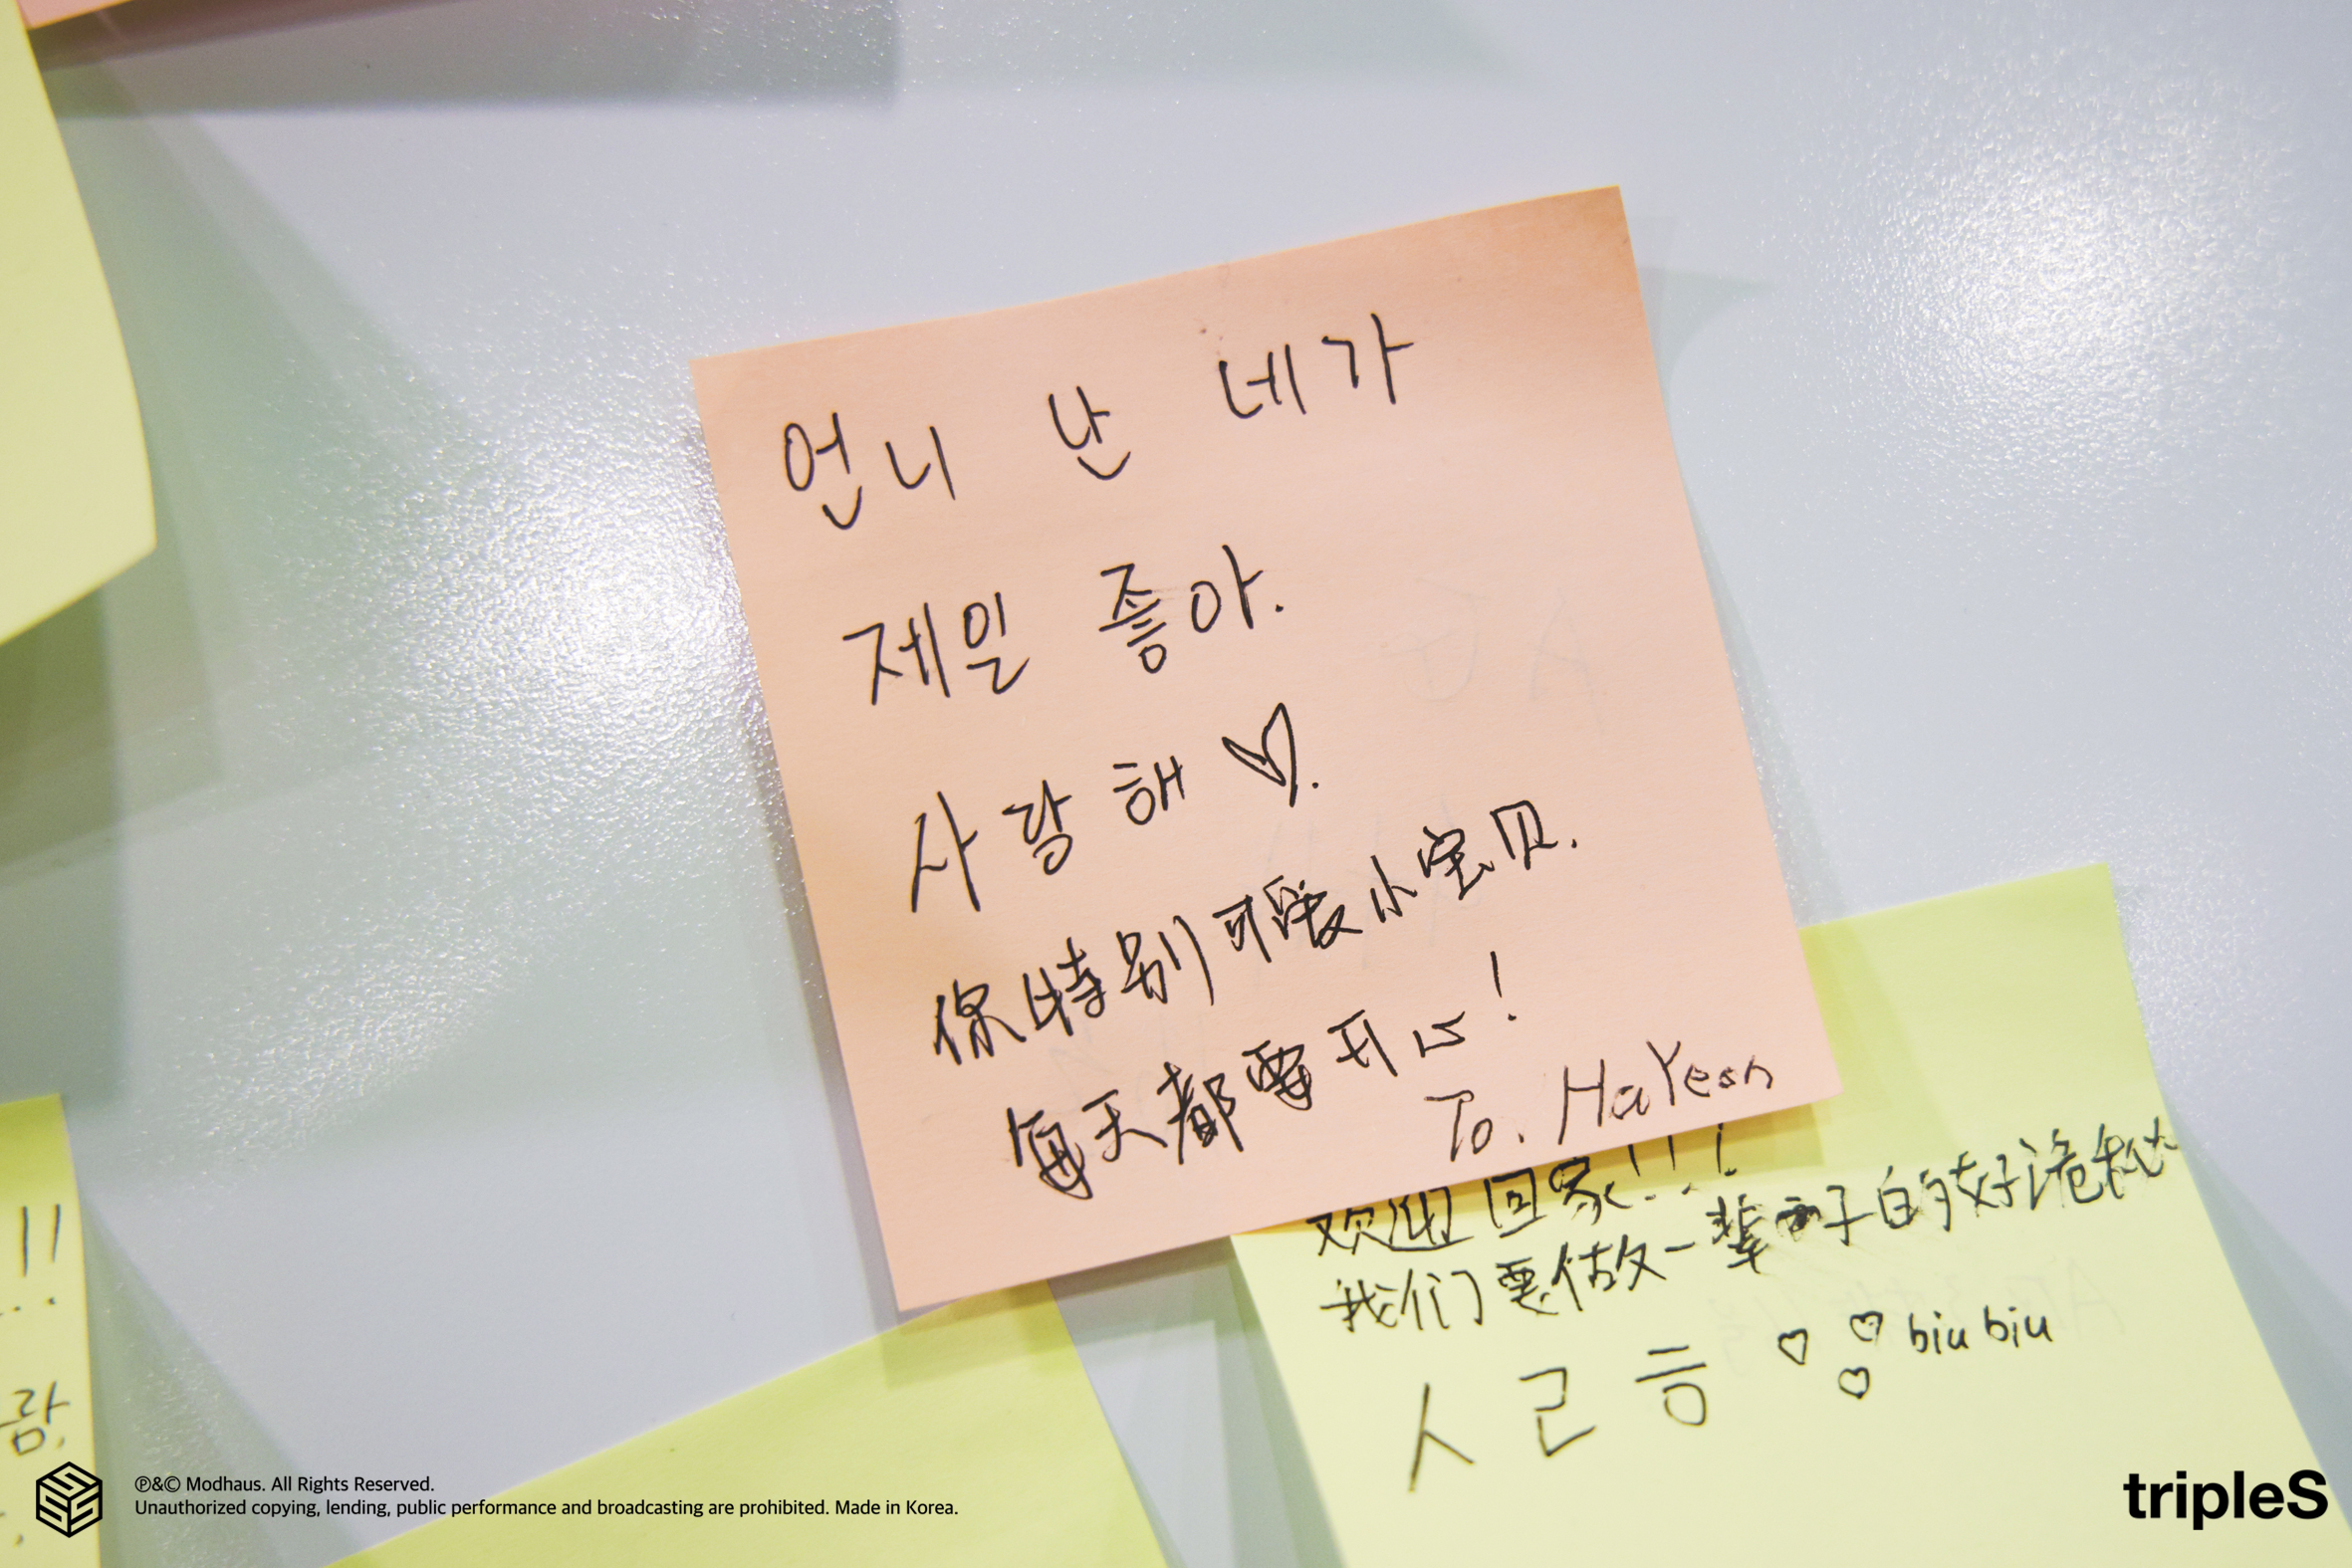 언니 난 네가
제일 좋아.
사랑해 ♡.
你特别可爱小宝贝.
每天都要开心!
To. HaYeon
欢迎回家!!!
我们要做一辈子的好诡秘
ㅅㄹㅎ ♡♡♡ biu biu
람,
℗&© Modhaus. All Rights Reserved.
Unauthorized copying, lending, public performance and broadcasting are prohibited. Made in Korea.
tripleS